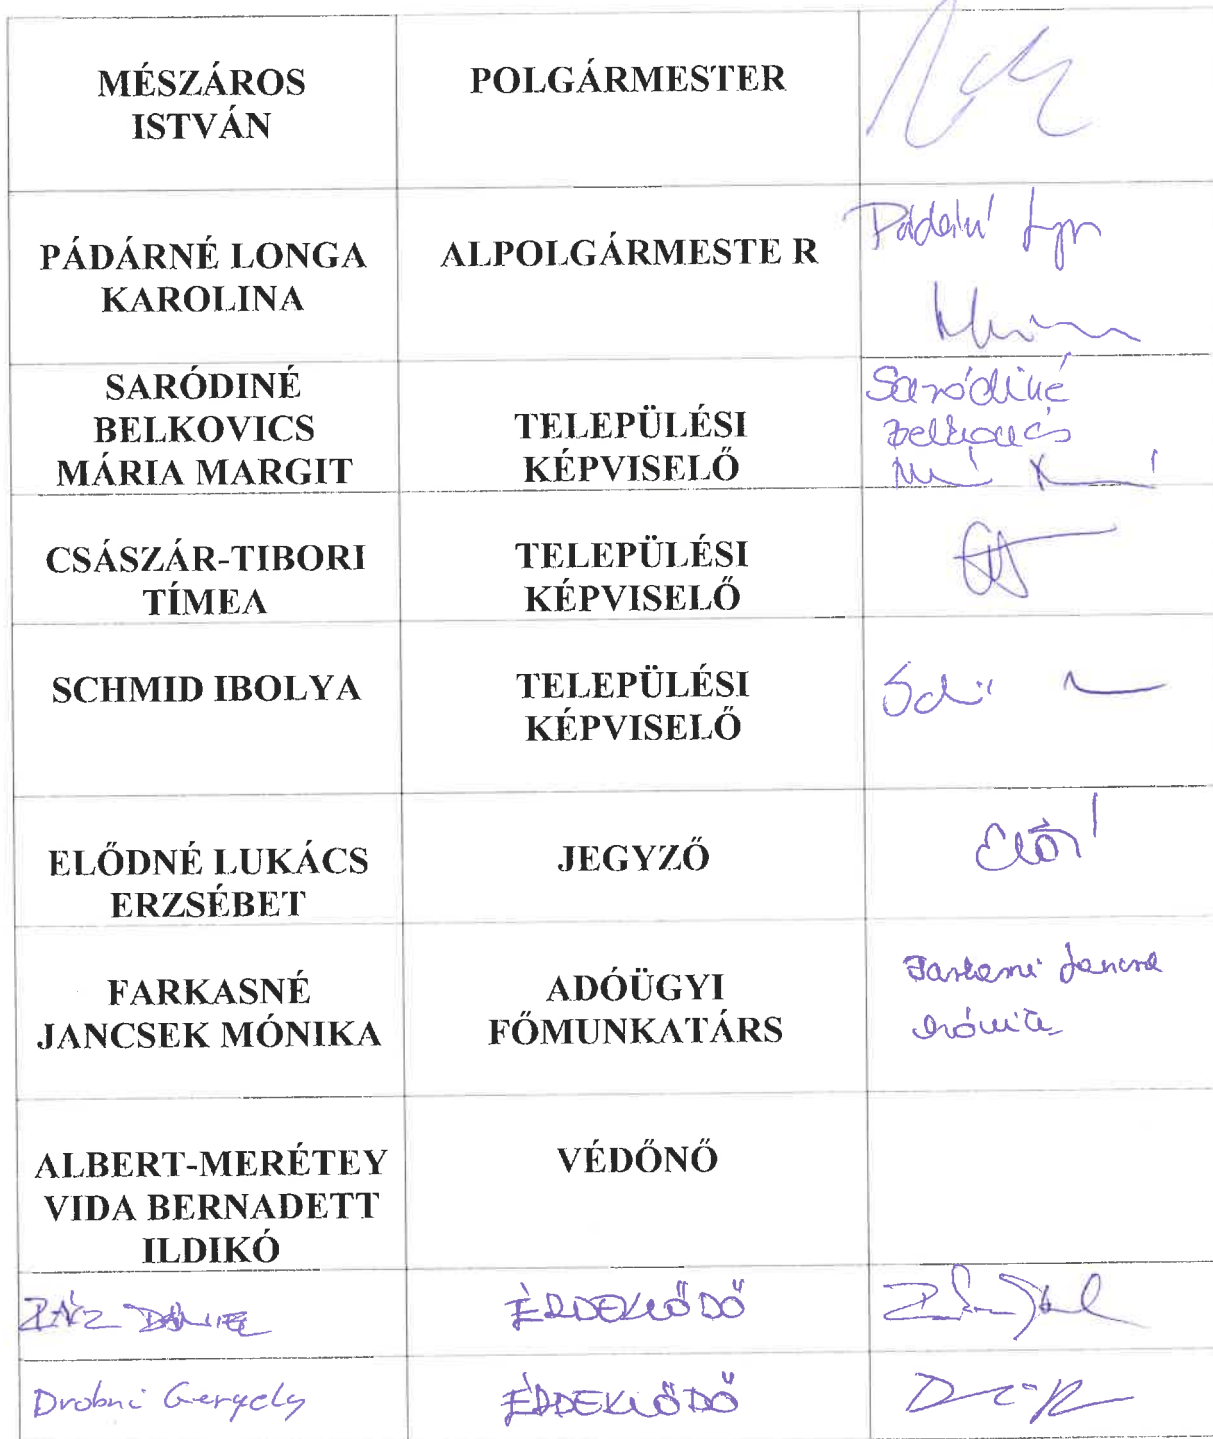 MÉSZÁROS
ISTVÁN
POLGÁRMESTER
PÁDÁRNÉ LONGA
KAROLINA
ALPOLGÁRMESTE R
SARÓDINÉ
BELKOVICS
MÁRIA MARGIT
TELEPÜLÉSI
KÉPVISELŐ
Saródiné
Belkovics
CSÁSZÁR-TIBORI
TÍMEA
TELEPÜLÉSI
KÉPVISELŐ
SCHMID IBOLYA
TELEPÜLÉSI
KÉPVISELŐ
ELŐDNÉ LUKÁCS
ERZSÉBET
JEGYZŐ
FARKASNÉ
JANCSEK MÓNIKA
ADÓÜGYI
FŐMUNKATÁRS
Farkasné Jancsek
Mónika
ALBERT-MERÉTEY
VIDA BERNADETT
ILDIKÓ
VÉDŐNŐ
DÁNIEL
ÉRDEKLŐDŐ
Drobni Gergely
ÉRDEKLŐDŐ